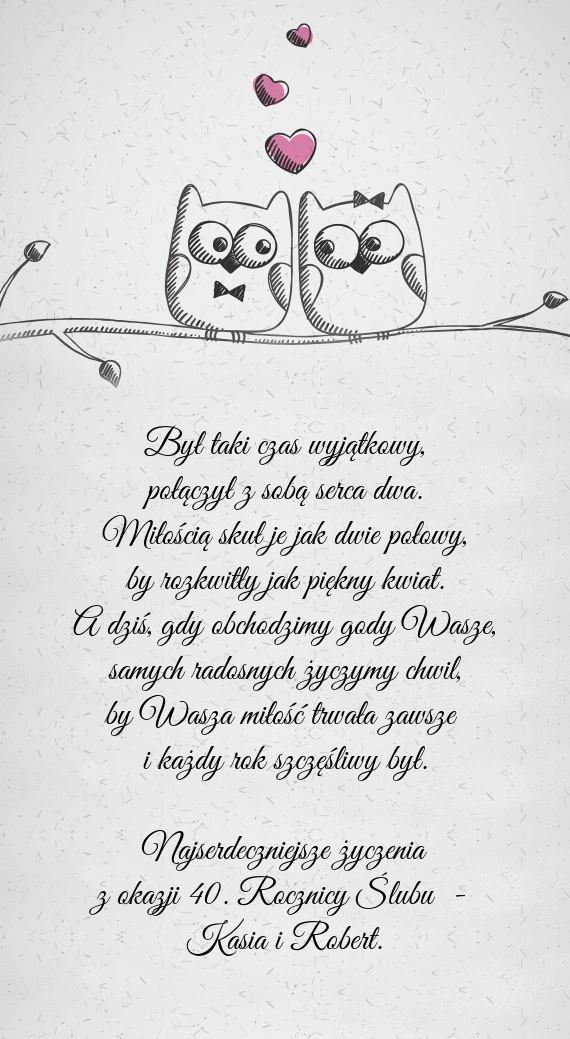 Był taki czas wyjątkowy,
połączył z sobą serca dwa.
Miłością skuł je jak dwie połowy,
by rozkwitły jak piękny kwiat.
A dziś, gdy obchodzimy gody Wasze,
samych radosnych życzymy chwil,
by Wasza miłość trwała zawsze
i każdy rok szczęśliwy był.
Najserdeczniejsze życzenia
z okazji 40. Rocznicy Ślubu -
Kasia i Robert.